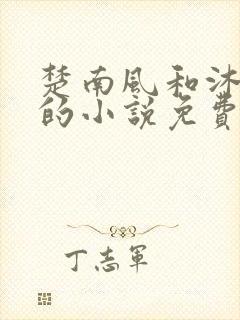 楚南風和沐
的小說免費
丁志軍